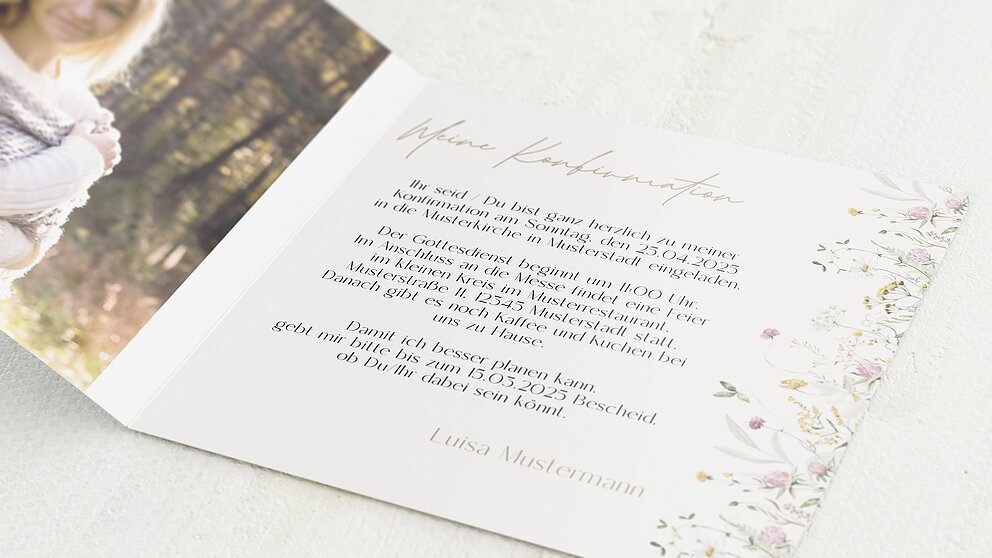 Meine Konfirmation
Ihr seid / Du bist ganz herzlich zu meiner
Konfirmation am Sonntag, den 25.04.2025
in die Musterkirche in Musterstadt eingeladen.
Der Gottesdienst beginnt um 11:00 Uhr.
Im Anschluss an die Messe findet eine Feier
im kleinen Kreis im Musterrestaurant,
Musterstraße 11, 12345 Musterstadt statt.
Danach gibt es noch Kaffee und Kuchen bei
uns zu Hause.
Damit ich besser planen kann,
gebt mir bitte bis zum 15.03.2025 Bescheid,
ob Du/Ihr dabei sein könnt.
Luisa Mustermann